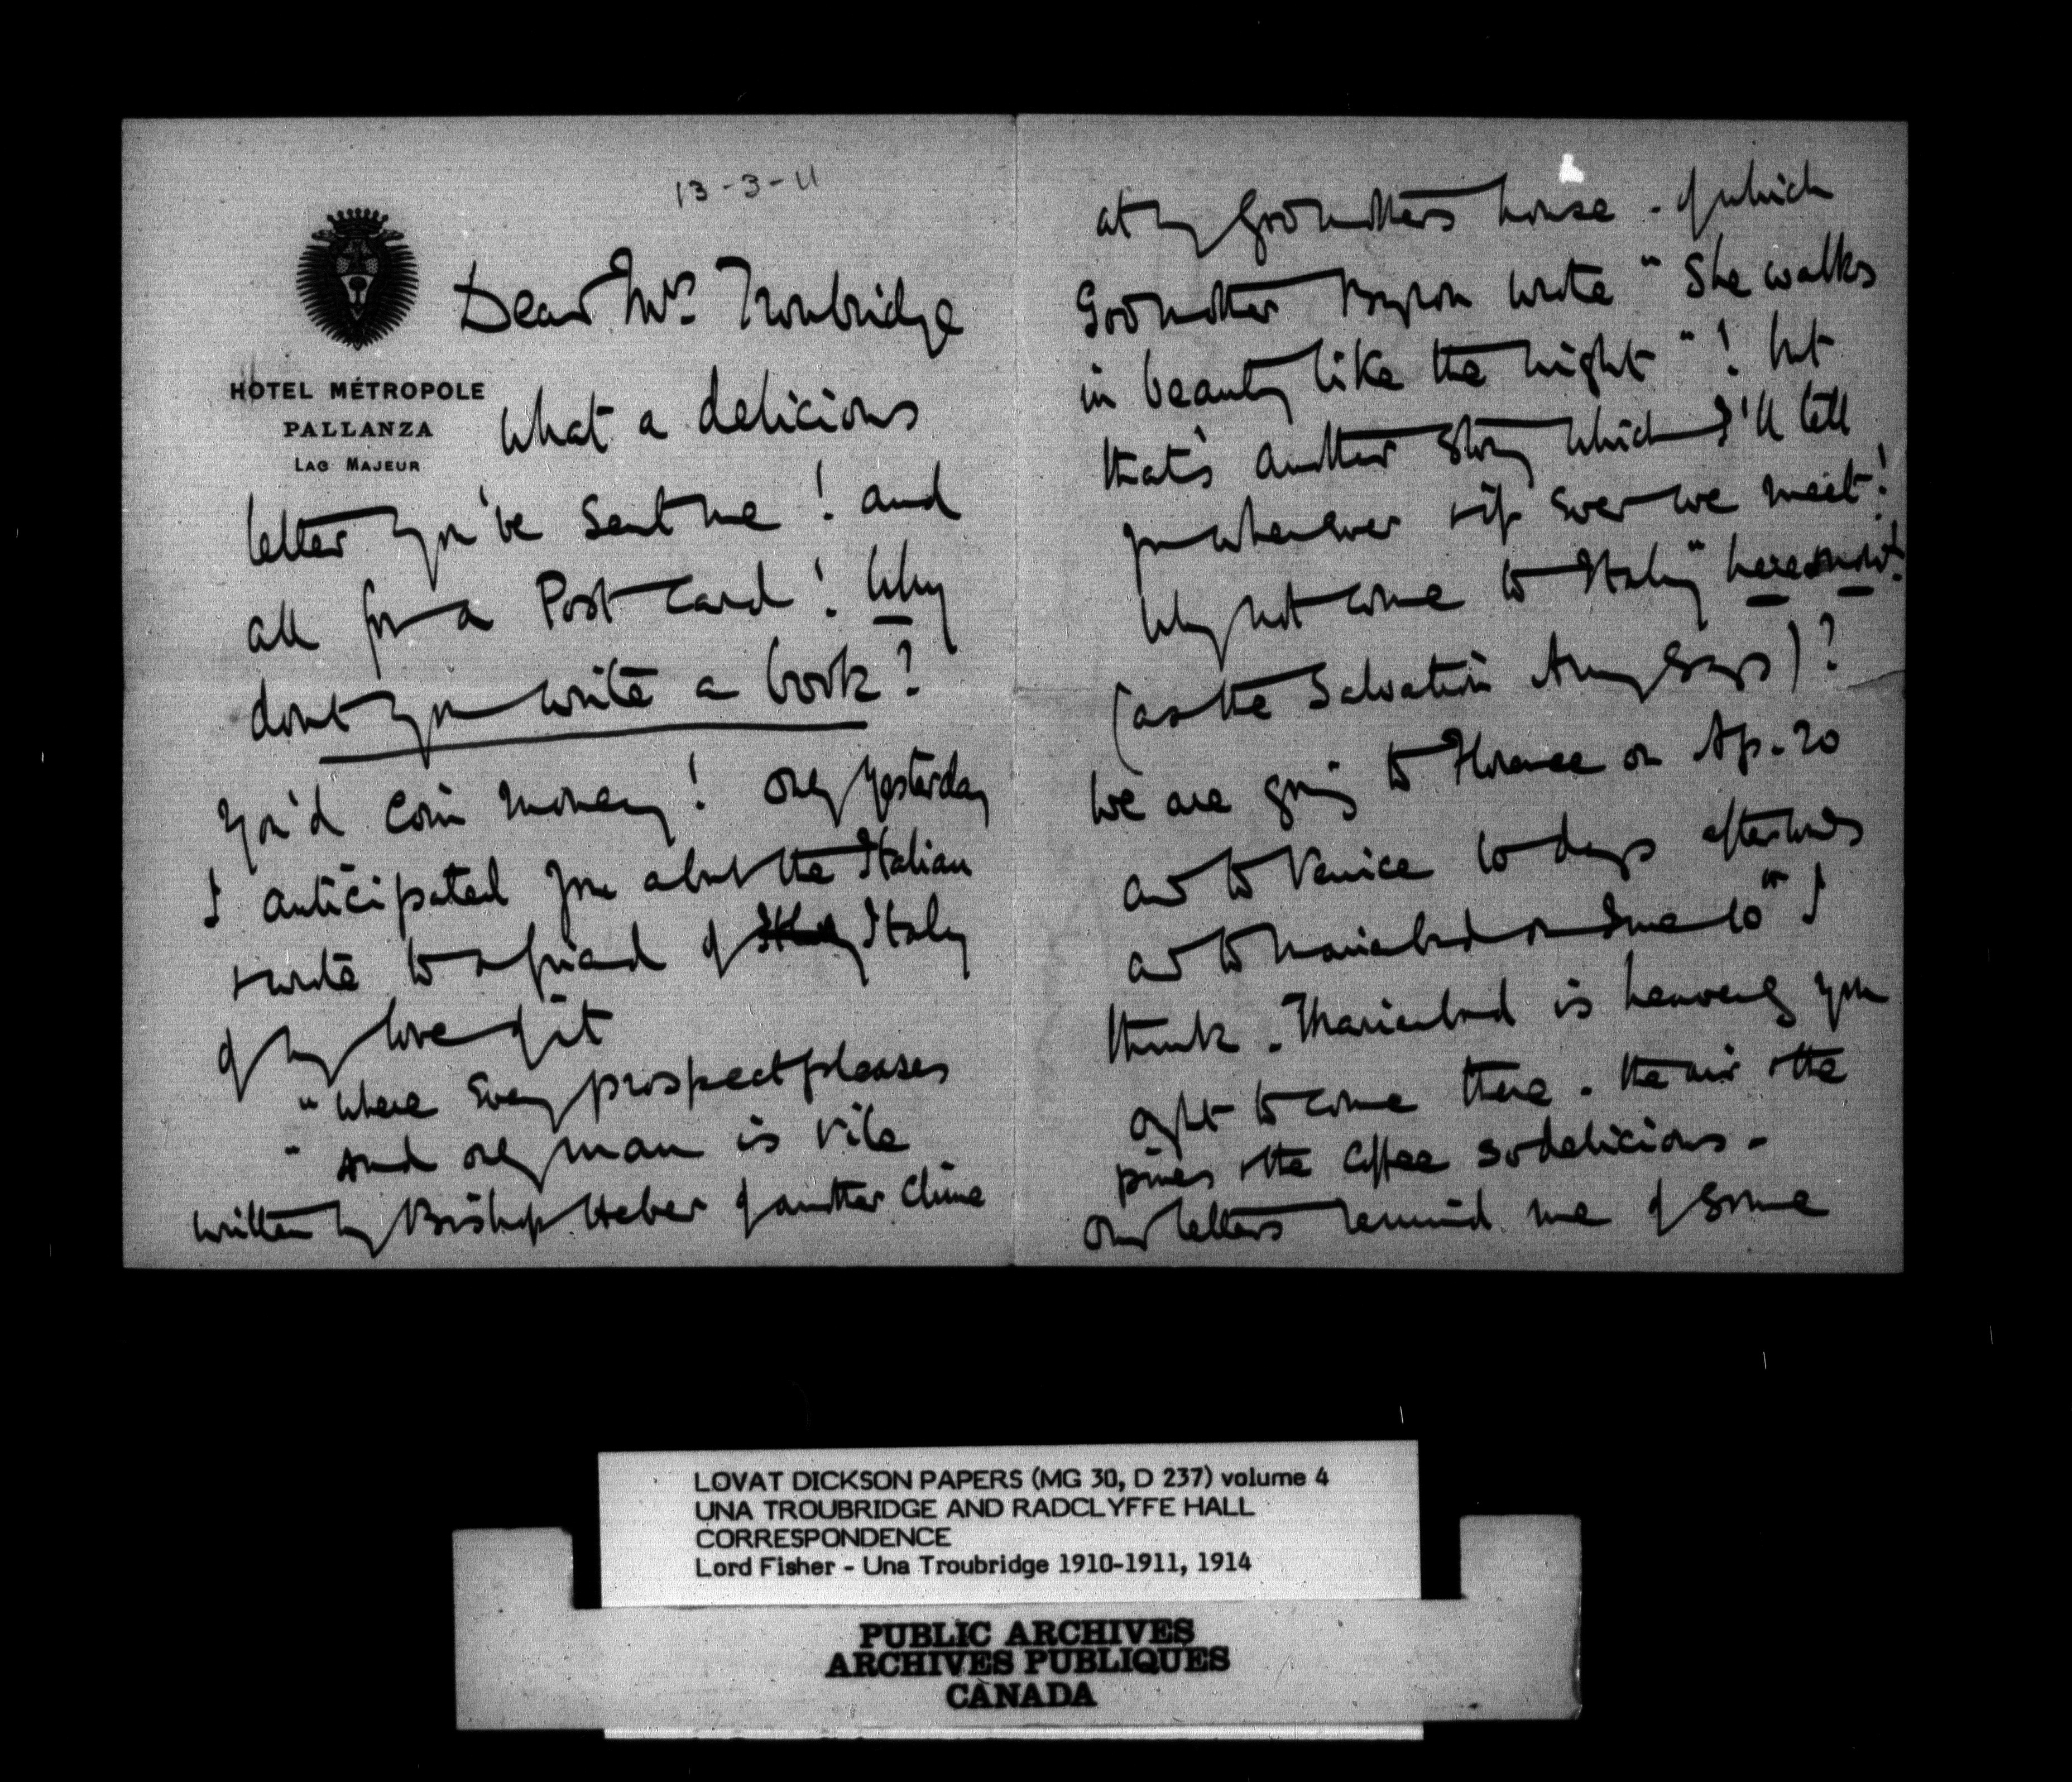 13-3-11
HOTEL MÉTROPOLE
PALLANZA
LAC MAJEUR
Dear Mrs. Troubridge
What a delicious
letter you've sent me! and
all for a Post Card! Why
dont you write a book?
You'd coin money! Only yesterday
I anticipated you about the Italian
& wrote to a friend of Italy
of my love of it
"Where every prospect pleases
" And only man is vile
written by Bishop Heber of another clime
at my Godmother's house - of which
Godmother Byron wrote "She walks
in beauty like the night"! but
that's another story which I'll tell
you whenever & if ever we meet!
Why not come to Italy "here & now"!
(as the Salvation Army says)?
We are going to Florence on Ap. 20
and to Venice 10 days afterwards
and to Marienbad on June 10th I
think. Marienbad is heavenly you
ought to come there. the air & the
pines & the coffee so delicious -
Our letters remind me of some
LOVAT DICKSON PAPERS (MG 30, D 237) volume 4
UNA TROUBRIDGE AND RADCLYFFE HALL
CORRESPONDENCE
Lord Fisher - Una Troubridge 1910-1911, 1914
PUBLIC ARCHIVES
ARCHIVES PUBLIQUES
CANADA